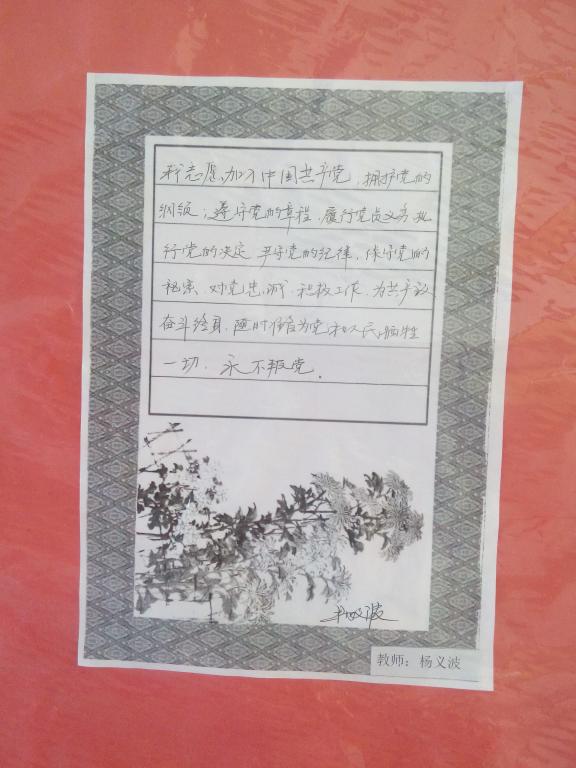 我志愿加入中国共产党，拥护党的
纲领，遵守党的章程，履行党员义务，执
行党的决定，严守党的纪律，保守党的
秘密，对党忠诚，积极工作，为共产主义
奋斗终身，随时准备为党和人民牺牲
一切，永不叛党．
杨义波
教师：杨义波